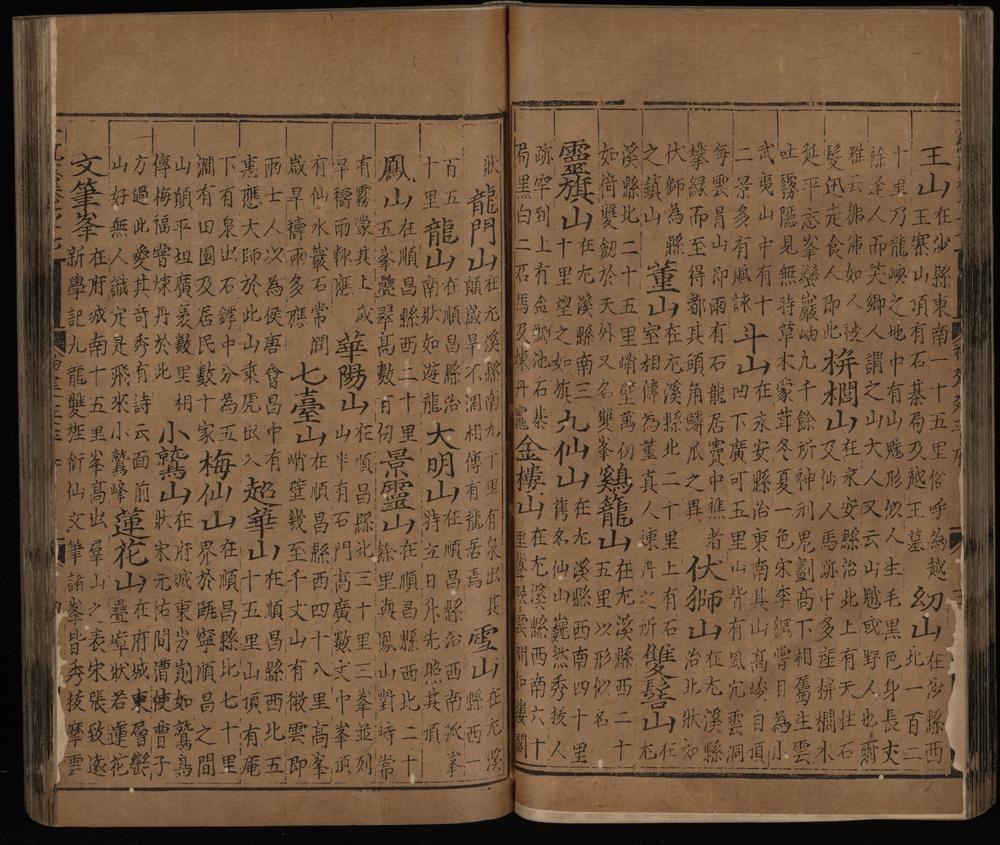 王山在沙縣東南一十五里俗呼為越王寨山頂有石棊局及越王墓 幼山在沙縣西北一百二
十里乃龍峽之地中有山魈形似人生毛黑色身長丈餘逢人而笑鄉人謂之山大人又云山魈或野人也爾
雅云狒狒如人被髮迅走食人即此 栟櫚山在永安縣治北上有天柱石及仙人馬跡中多産栟櫚木
延平志峯巒巖岫九千餘所神刓鬼劃高下相屬生雲吐霧隱見無時草木蒙茸冬夏一色宋李綱嘗目為小
武夷山中有十二景多有賦詠 斗山在永安縣治東南其山高峻自頂凹下廣可五里山背有風穴雲洞
每雲冐山即雨有石龍居竇中樵者攀緣而至得都其頭角鱗瓜之異 伏獅山在尤溪縣治北狀如
伏師為縣之鎮山 董山在尤溪縣北二十里上有石室相傳為董真人煉丹之所 雙髻山在尤
溪縣北二十五里峭壁萬仞如倚雙劒於天外又名雙峯 鷄籠山在尤溪縣西二十五里以形似名
靈旗山在尤溪縣南三十里望之如旗 九仙山在尤溪縣西南四十里舊名仙山巍然秀拔人
跡罕到上有金鯽池石棊局黑白二石馬及煉丹竈 金樓山在尤溪縣西南六十里聳翠雲間如樓閣
狀 龍門山在尤溪縣南九十里有泉出其顛歲旱不涸相傳有龍居焉 雪山在尤溪縣西一
百五十里 龍山在順昌縣治南狀如遊龍 大明山在順昌縣治西南孤峯特立日升先照其頂
鳳山在順昌縣西二十里五峯疊翠高數百仞 景靈山在順昌縣西北二十餘里與鳳山對峙常
有霧蒙其上歲旱禱雨輙應 華陽山在順昌縣北三十里三峯並列山半有石門高廣數丈中峯頂
有仙水巖石常潤歲旱禱雨多應 七臺山在順昌縣西四十八里高峯峭壁幾至千丈山有微雲即
雨士人次為侯唐會昌中有惠應大師於此山乘虎出入 超華山在順昌縣西北五十五里山頂有庵
下有泉出石罅中分為五澗有田園及居民數十家 梅仙山在順昌縣北七十里界於寧順昌之間
山顛平坦廣袤數里相傳梅福嘗煉丹於此 小鷲山在府城東如鷲鳥狀宋元祐間漕使曹子
方過此愛其奇秀有詩云面前山好無人識定是飛來小鷲峰 蓮花山在府城東層巒疊巘狀若蓮花
文筆峯在府城南十五里峯高出羣山之表宋張致遠新學記九龍雙溪衍仙文筆諸峯皆秀拔摩雲